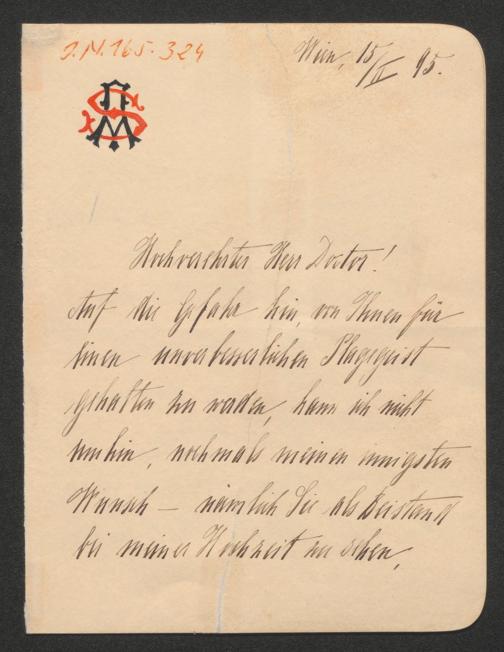 J.N. 165.324
Wien, 15/II 95.
Hochverehrter Herr Doctor!
Auf die Gefahr hin, von Ihnen für
einen unverbesserlichen Plagegeist
gehalten zu werden, kann ich nicht
umhin, nochmals meinen innigsten
Wunsch – nämlich Sie als Beistand
bei meiner Hochzeit zu sehen,